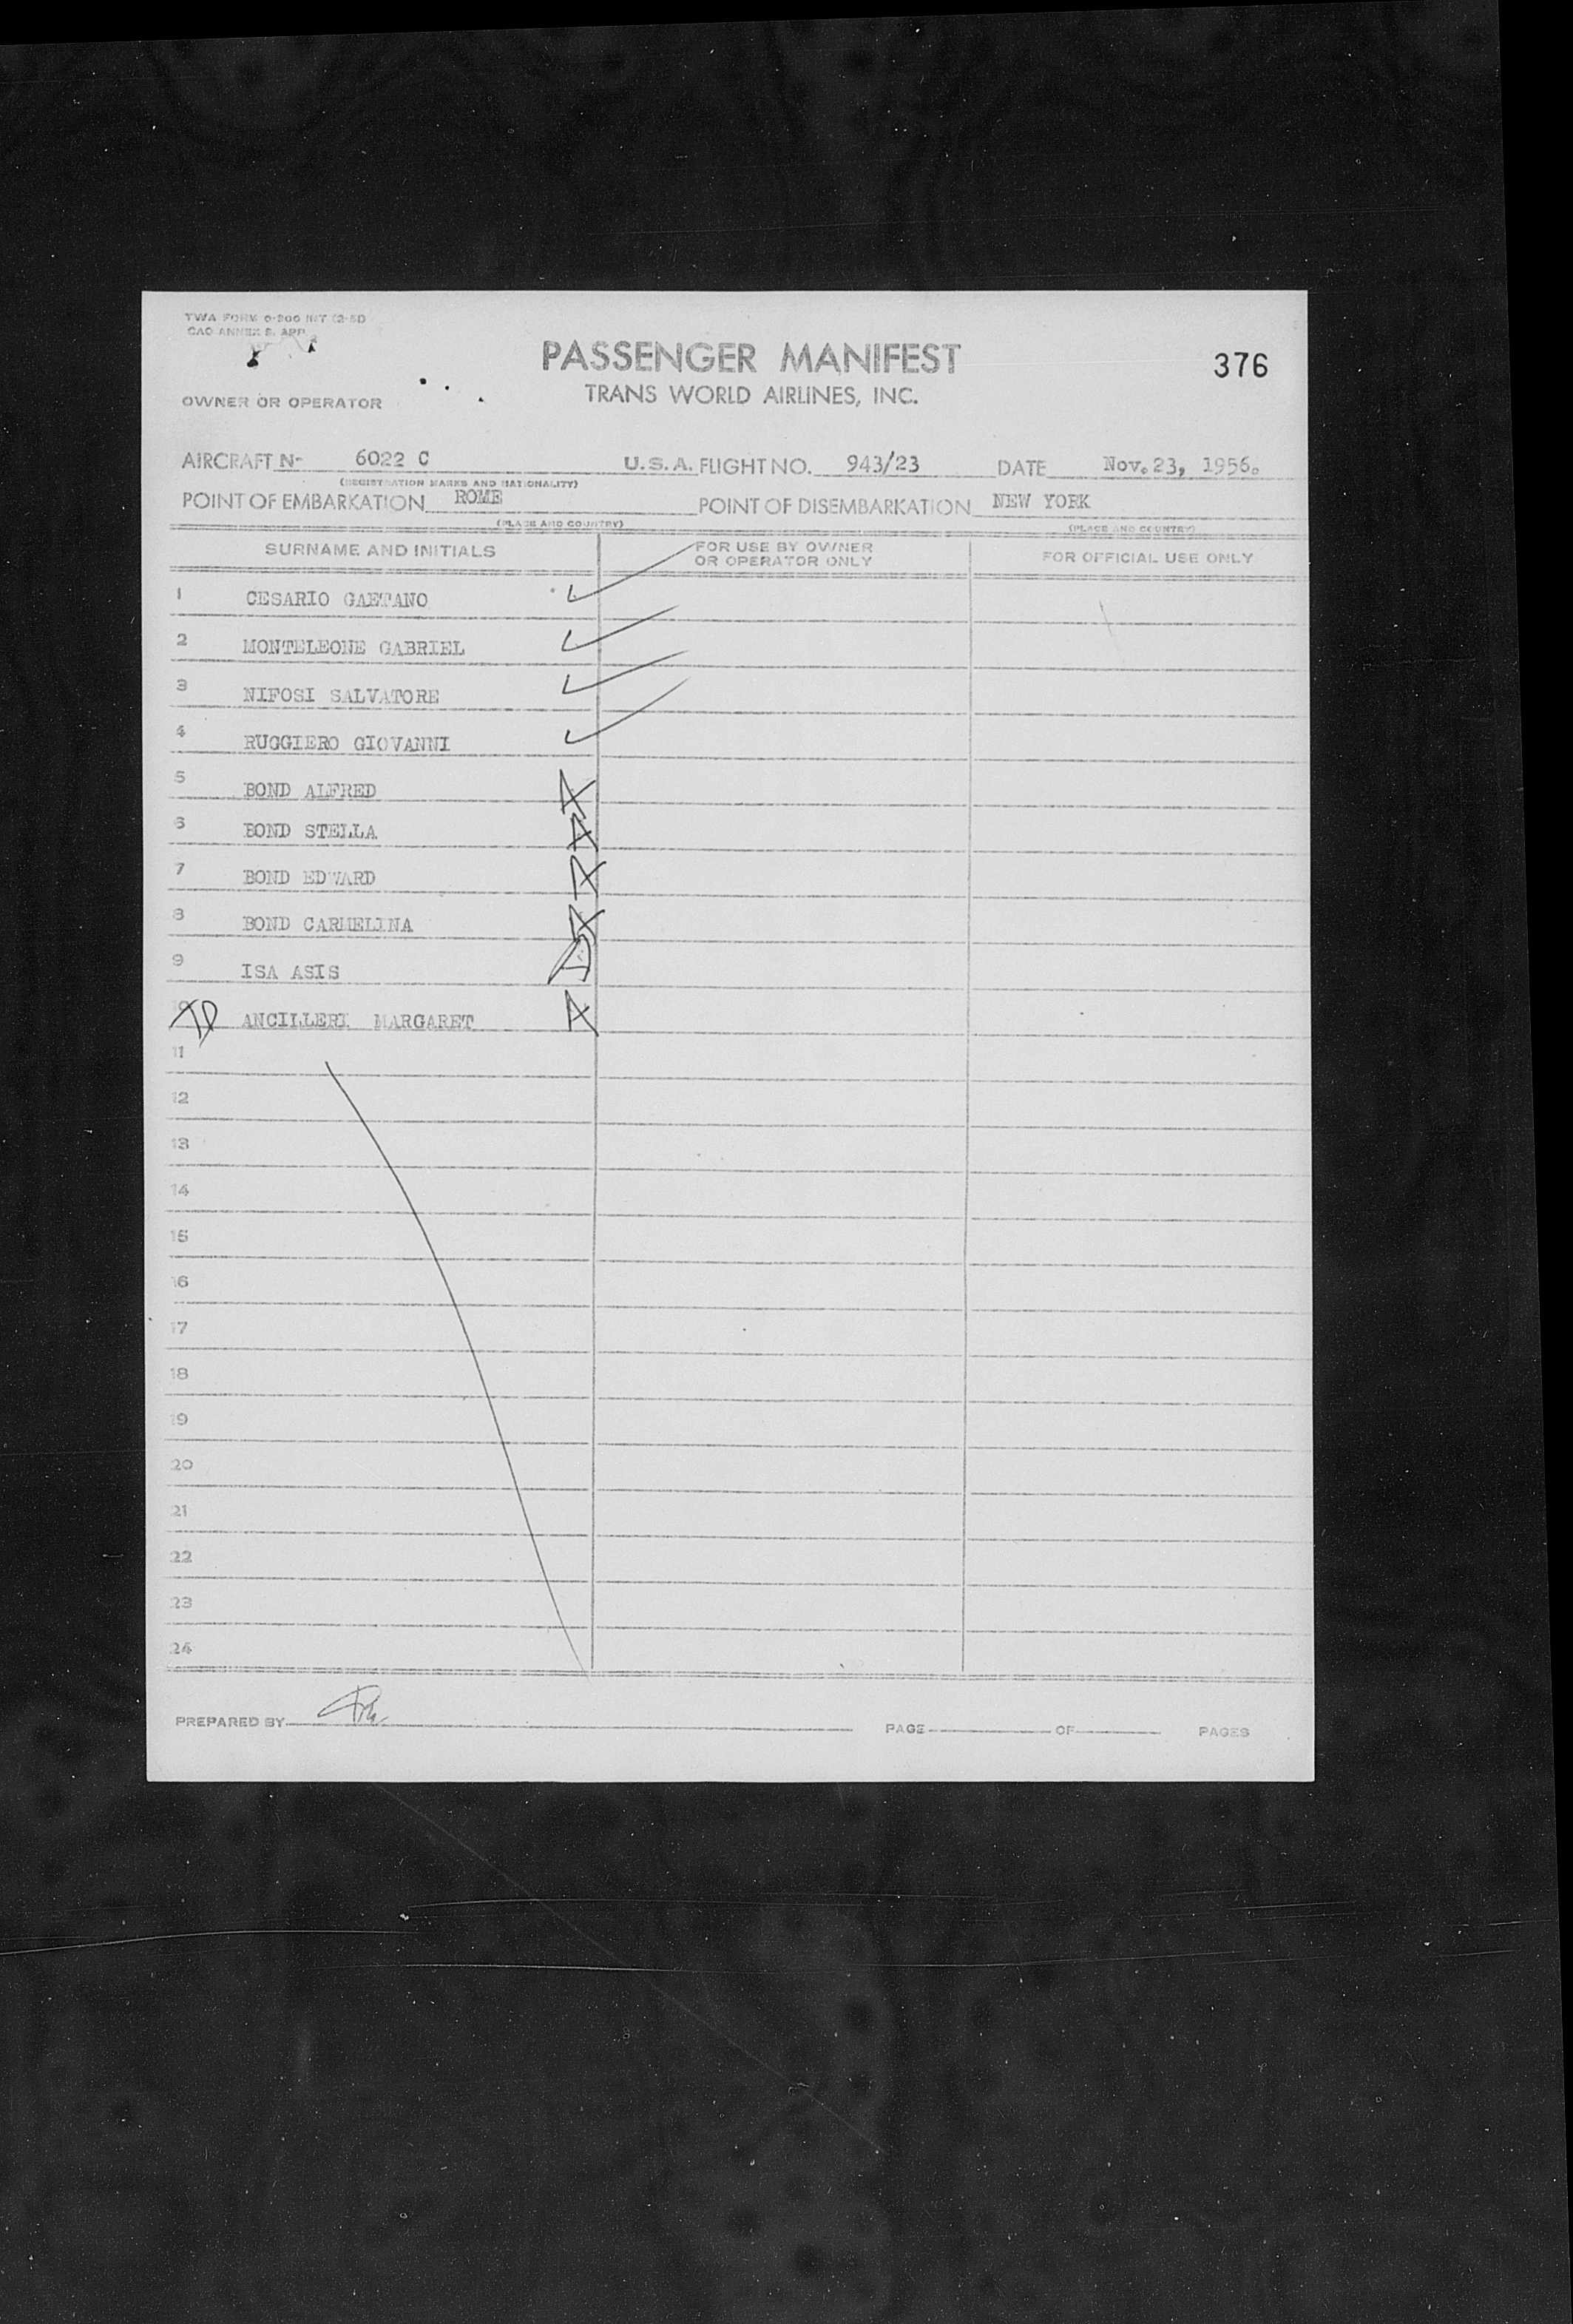 TWA FORM 0-200 INT (3-51)
CAO ANNEX 9. APP.
PASSENGER MANIFEST
376
TRANS WORLD AIRLINES, INC.
OWNER OR OPERATOR
AIRCRAFT Nº 6022 C U. S. A. FLIGHT NO. 943/23 DATE Nov. 23, 1956.
(REGISTRATION MARKS AND NATIONALITY)
POINT OF EMBARKATION ROME POINT OF DISEMBARKATION NEW YORK
(PLACE AND COUNTRY) (PLACE AND COUNTRY)
SURNAME AND INITIALS FOR USE BY OWNER OR OPERATOR ONLY FOR OFFICIAL USE ONLY
1 CESARIO GAETANO
2 MONTELEONE GABRIEL
3 NIFOSI SALVATORE
4 RUGGIERO GIOVANNI
5 BOND ALFRED
6 BOND STELLA
7 BOND EDWARD
8 BOND CARMELINA
9 ISA ASIS
10 ANCILLERI MARGARET
11
12
13
14
15
16
17
18
19
20
21
22
23
24
PREPARED BY PAGE OF PAGES